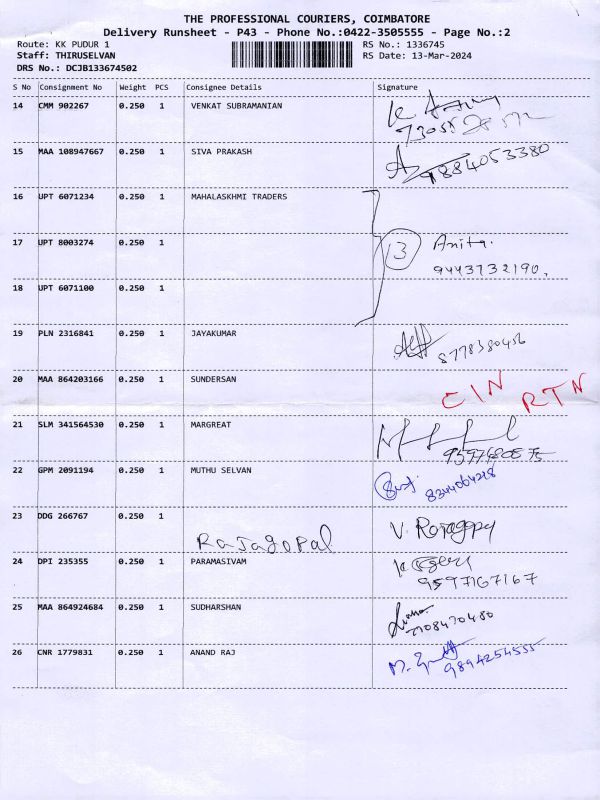 THE PROFESSIONAL COURIERS, COIMBATORE
Delivery Runsheet - P43 - Phone No.:0422-3505555 - Page No.:2
Route: KK PUDUR 1 RS No.: 1336745
Staff: THIRUSELVAN RS Date: 13-Mar-2024
DRS No.: DCJB133674502
S No Consignment No Weight PCS Consignee Details Signature
14 CMM 902267 0.250 1 VENKAT SUBRAMANIAN
15 MAA 108947667 0.250 1 SIVA PRAKASH 9884053380
16 UPT 6071234 0.250 1 MAHALASKHMI TRADERS
17 UPT 8003274 0.250 1 3 Anita.
9443732190,
18 UPT 6071100 0.250 1
19 PLN 2316841 0.250 1 JAYAKUMAR 8778380456
20 MAA 864203166 0.250 1 SUNDERSAN CIN RTN
21 SLM 341564530 0.250 1 MARGREAT
22 GPM 2091194 0.250 1 MUTHU SELVAN
8344064218
23 DDG 266767 0.250 1
Rajagopal
24 DPI 235355 0.250 1 PARAMASIVAM
9597167167
25 MAA 864924684 0.250 1 SUDHARSHAN
7708470480
26 CNR 1779831 0.250 1 ANAND RAJ
9894254555